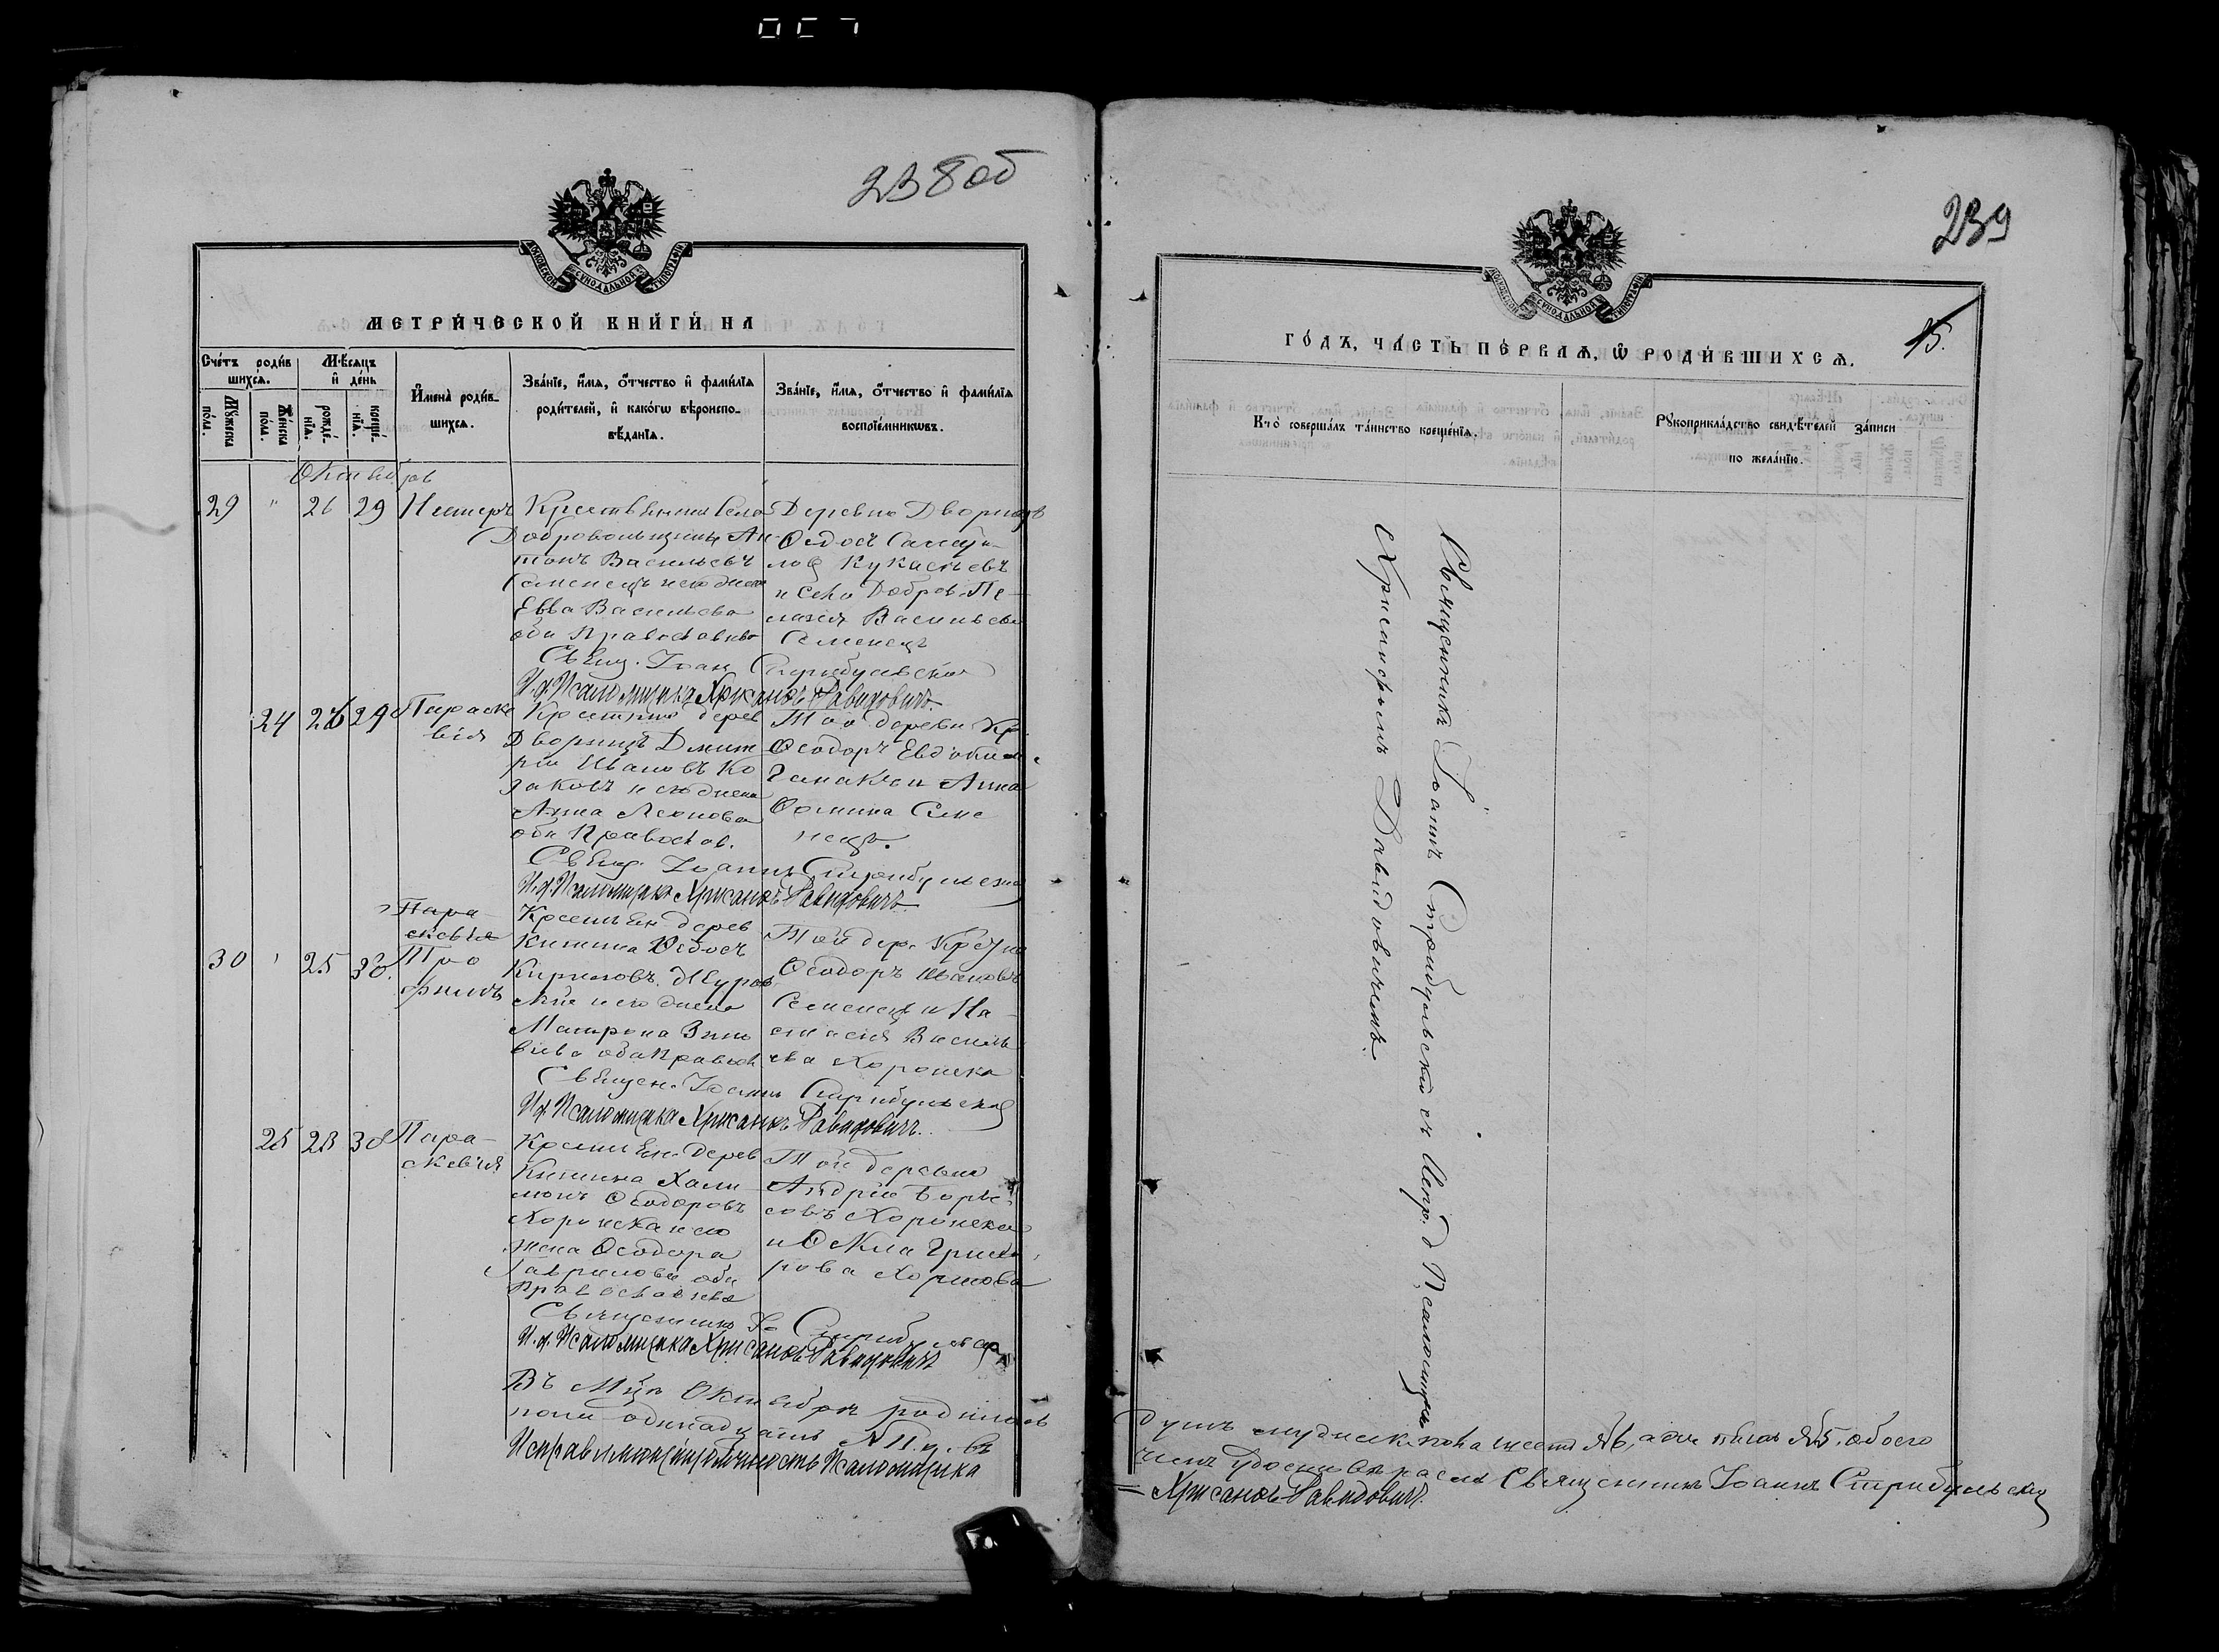 238об
МОСКОВСКОЙ СУНОДАЛЬНОЙ ТИПОГРАФІИ
МЕТРИ́ЧЕСКОЙ КНИ́ГИ НА
Сче́тъ роди́в
шихсѧ.
Мѣ́сѧцъ
и҆ де́нь
Мꙋ́жеска
по́ла.
Же́нска
по́ла.
рожде́-
нїѧ.
креще́-
нїѧ.
И҆мена̀ роди́в-
шихсѧ.
Зва́нїе, и҆́мѧ, ѻ҆́тчество и҆ фами́лїѧ
роди́телей, и҆ како́гѡ вѣроиспо-
вѣ́данїѧ.
Зва́нїе, и҆́мѧ, ѻ҆́тчество и҆ фами́лїѧ
воспрїе́мникѡвъ.
Октябрь
29 " 26 29 Нестеръ
Крестьянинъ села
Добровольщины Ан-
тонъ Васильевъ
Семенецъ и его жена
Евва Васильева
оба Православно
Деревни Дворищъ
Ѳедосъ
и села Добров. Пе-
лагія Васильева
Семенецъ
Свящ. Іоан. Стрибульскій
И. д. Псаломщика Хрисанѳъ Давидовичъ.
24 26 29 Параске
вія
Крестьянинъ дерев
Дворищъ Дмит
рій Ивановъ Ко
заковъ и его жена
Анна Леонова
оба Православ.
Той деревни Кр.
Ѳеодоръ Евдоким.
и Анна
Ѳомина Семе
нецъ.
Свящ. Іоаннъ Стрибульскій
И. д. Псаломщика Хрисанѳъ Давидовичъ.
Пара-
скевія
30 " 25 30. Тро
фимъ
Крестьян. дерев
Кишина Ѳедосъ
Кириловъ Журов
скій и его жена
Матрона Зино
віева оба Православ
Той дер. Кр-нъ
Ѳеодоръ Ивановъ
Семенецъ и На-
стасія Василь
ева Хоронека
Священ. Іоаннъ Стрибульскій
И. д. Псаломщика Хрисанѳъ Давидовичъ.
25 28 30 Пара-
скевія
Крестьян. дерев
Кишина Хали
монъ Ѳеодоровъ
Хоронека и его
жена Ѳеодора
Гаврилова оба
Православные
Той деревни
Андрей Борі-
совъ Хоронека
и Ѳекла Григо
рова
Священникъ Іо. Стрибульскій
И. д. Псаломщика Хрисанѳъ Давидовичъ
Въ М-цѣ Октябрѣ родилось
Исправляющій должность Псаломщика
239
МОСКОВСКОЙ СУНОДАЛЬНОЙ ТИПОГРАФІИ
15.
ГО́ДЪ, ЧА́СТЬ ПЕ́РВАѦ, Ѡ҆ РОДИ́ВШИХСѦ.
Кто̀ соверша́лъ та́инство креще́нїѧ.
Рꙋкоприкла́дство свидѣ́телей за́писи
по жела́нїю.
Священникъ Іоаннъ Стрибульскій съ Испр. д. Псаломщика
Хрисанфомъ Давидовичемъ.
душъ мужеск. пола шесть №6, а жен. пять №5, обоего
Священникъ Іоаннъ Стрибульскій
Хрисанѳъ Давидовичъ.